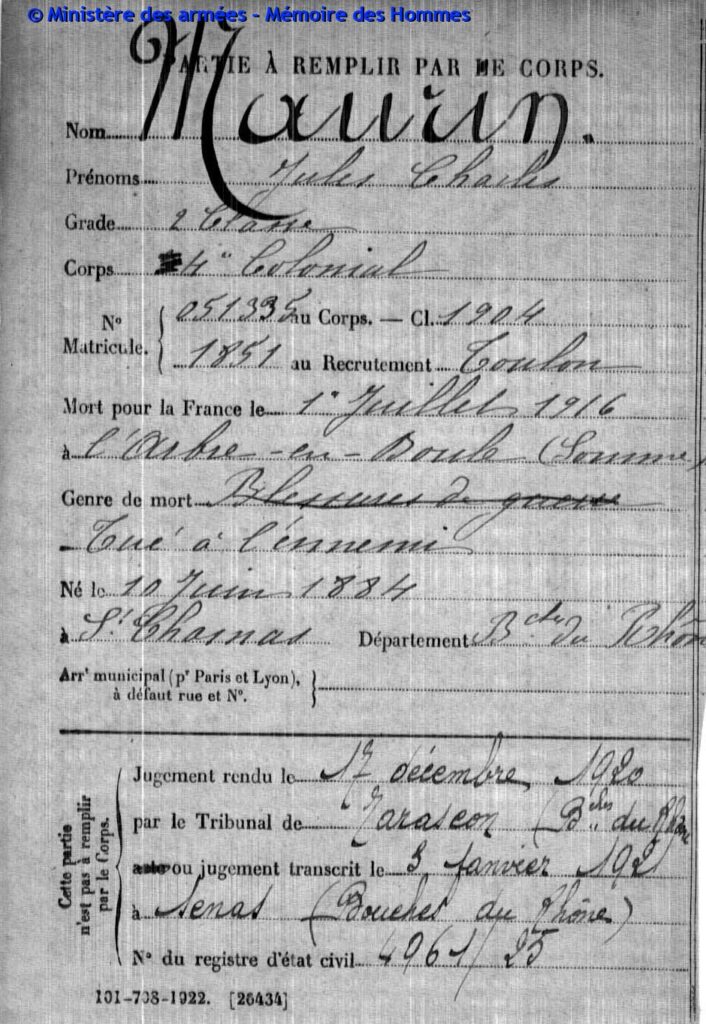 © Ministère des armées - Mémoire des Hommes
PARTIE À REMPLIR PAR LE CORPS.
Nom Maurin.
Prénoms Jules Charles
Grade 2 Classe
Corps 4e Colonial
No Matricule. 051335 au Corps. — Cl. 1904
1851 au Recrutement Toulon
Mort pour la France le 1er Juillet 1916
à l'Arbre-en-Boule (Somme)
Genre de mort Blessures de guerre
Tué à l'ennemi
Né le 10 Juin 1884
à St Chamas Département Bches du Rhône
Arrt municipal (pr Paris et Lyon),
à défaut rue et No.
Cette partie n'est pas à remplir par le Corps.
Jugement rendu le 17 décembre 1920
par le Tribunal de Tarascon (Bches du Rhône
acte ou jugement transcrit le 3 Janvier 1921
à Senas (Bouches du Rhône)
No du registre d'état civil 4961/25
101-708-1922. [26434]